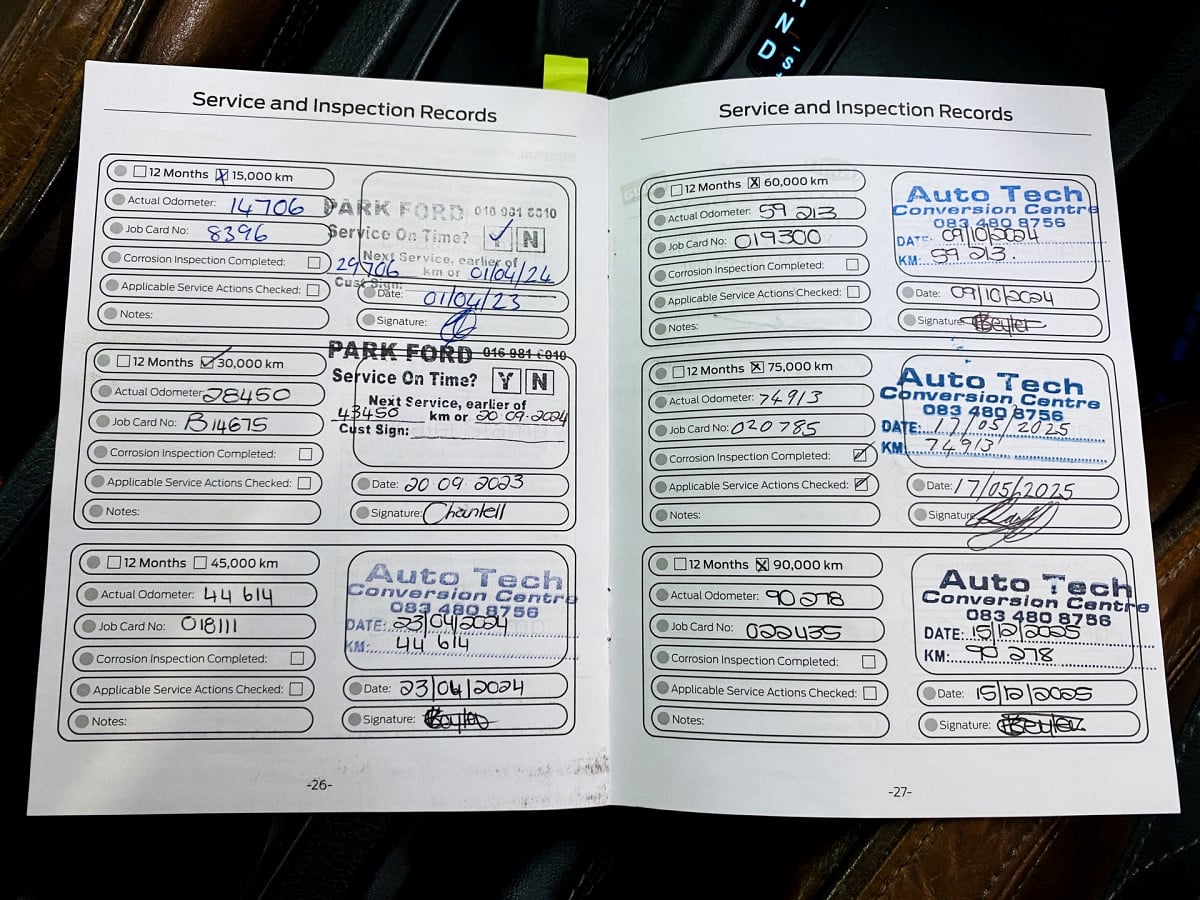 N
D
S
Service and Inspection Records
12 Months 15,000 km
Actual Odometer: 14706
Job Card No: 8396
Corrosion Inspection Completed:
Applicable Service Actions Checked:
Notes:
PARK FORD 016 981 6010
Service On Time? Y N
Next Service, earlier of
29706 km or 01/04/24
Cust Sign:
Date: 01/04/23
Signature:
12 Months 30,000 km
Actual Odometer: 28450
Job Card No: B14675
Corrosion Inspection Completed:
Applicable Service Actions Checked:
Notes:
PARK FORD 016 981 6010
Service On Time? Y N
Next Service, earlier of
43450 km or 20.09.2024
Cust Sign:
Date: 20.09.2023
Signature: Chantell
12 Months 45,000 km
Actual Odometer: 44 614
Job Card No: 018111
Corrosion Inspection Completed:
Applicable Service Actions Checked:
Notes:
Auto Tech
Conversion Centre
083 480 8756
DATE: 23/04/2024
KM: 44 614
Date: 23/04/2024
Signature:
-26-
Service and Inspection Records
12 Months X 60,000 km
Actual Odometer: 59 213
Job Card No: 019300
Corrosion Inspection Completed:
Applicable Service Actions Checked:
Notes:
Auto Tech
Conversion Centre
083 480 8756
DATE: 09/10/2024
KM: 59 213.
Date: 09/10/2024
Signature:
12 Months X 75,000 km
Actual Odometer: 74913
Job Card No: 020785
Corrosion Inspection Completed:
Applicable Service Actions Checked:
Notes:
Auto Tech
Conversion Centre
083 480 8756
DATE: 17/05/2025
KM: 74913
Date: 17/05/2025
Signature
12 Months X 90,000 km
Actual Odometer: 90 278
Job Card No: 022435
Corrosion Inspection Completed:
Applicable Service Actions Checked:
Notes:
Auto Tech
Conversion Centre
083 480 8756
DATE: 15/12/2025
KM: 90 278
Date: 15/12/2025
Signature:
-27-